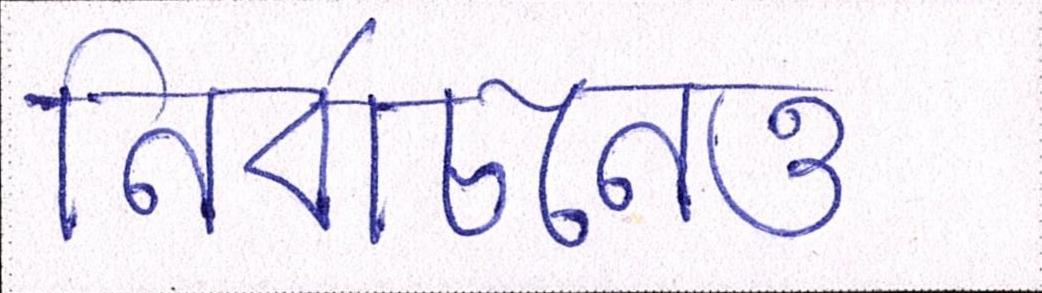 নির্বাচনেও